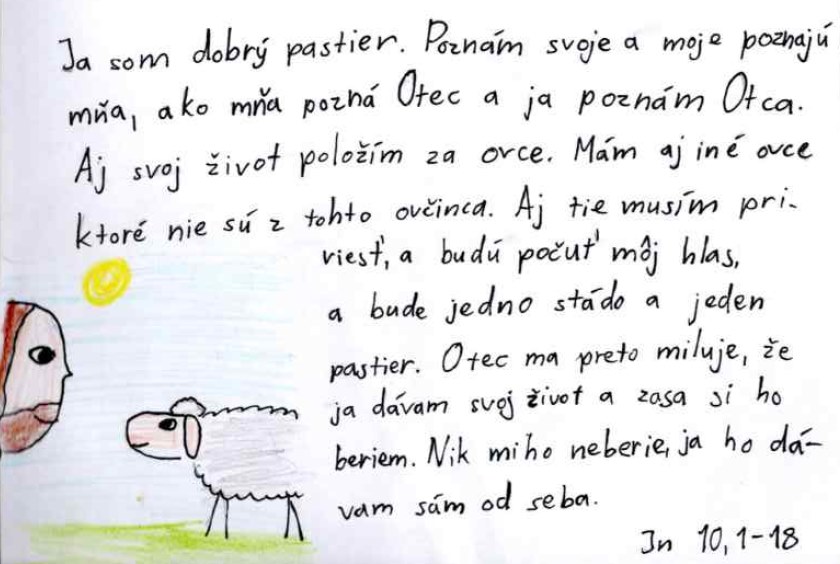 Ja som dobrý pastier. Poznám svoje a moje poznajú
mňa, ako mňa pozná Otec a ja poznám Otca.
Aj svoj život položím za ovce. Mám aj iné ovce
ktoré nie sú z tohto ovčinca. Aj tie musím pri-
viesť, a budú počuť môj hlas,
a bude jedno stádo a jeden
pastier. Otec ma preto miluje, že
ja dávam svoj život a zasa si ho
beriem. Nik mi ho neberie, ja ho dá-
vam sám od seba.
Jn 10, 1-18